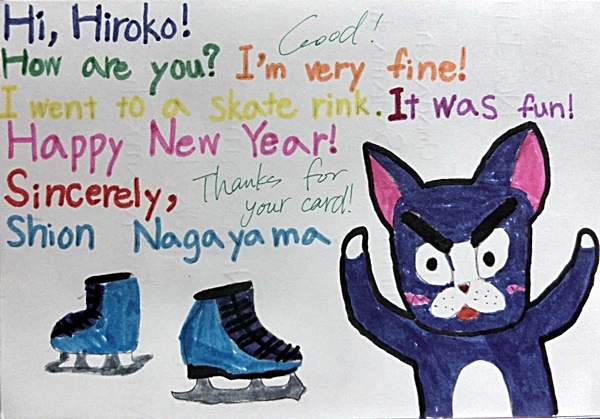 Hi, Hiroko!
Good!
How are you? I'm very fine!
I went to a skate rink. It was fun!
Happy New Year!
Sincerely,
Thanks for
your card!
Shion Nagayama